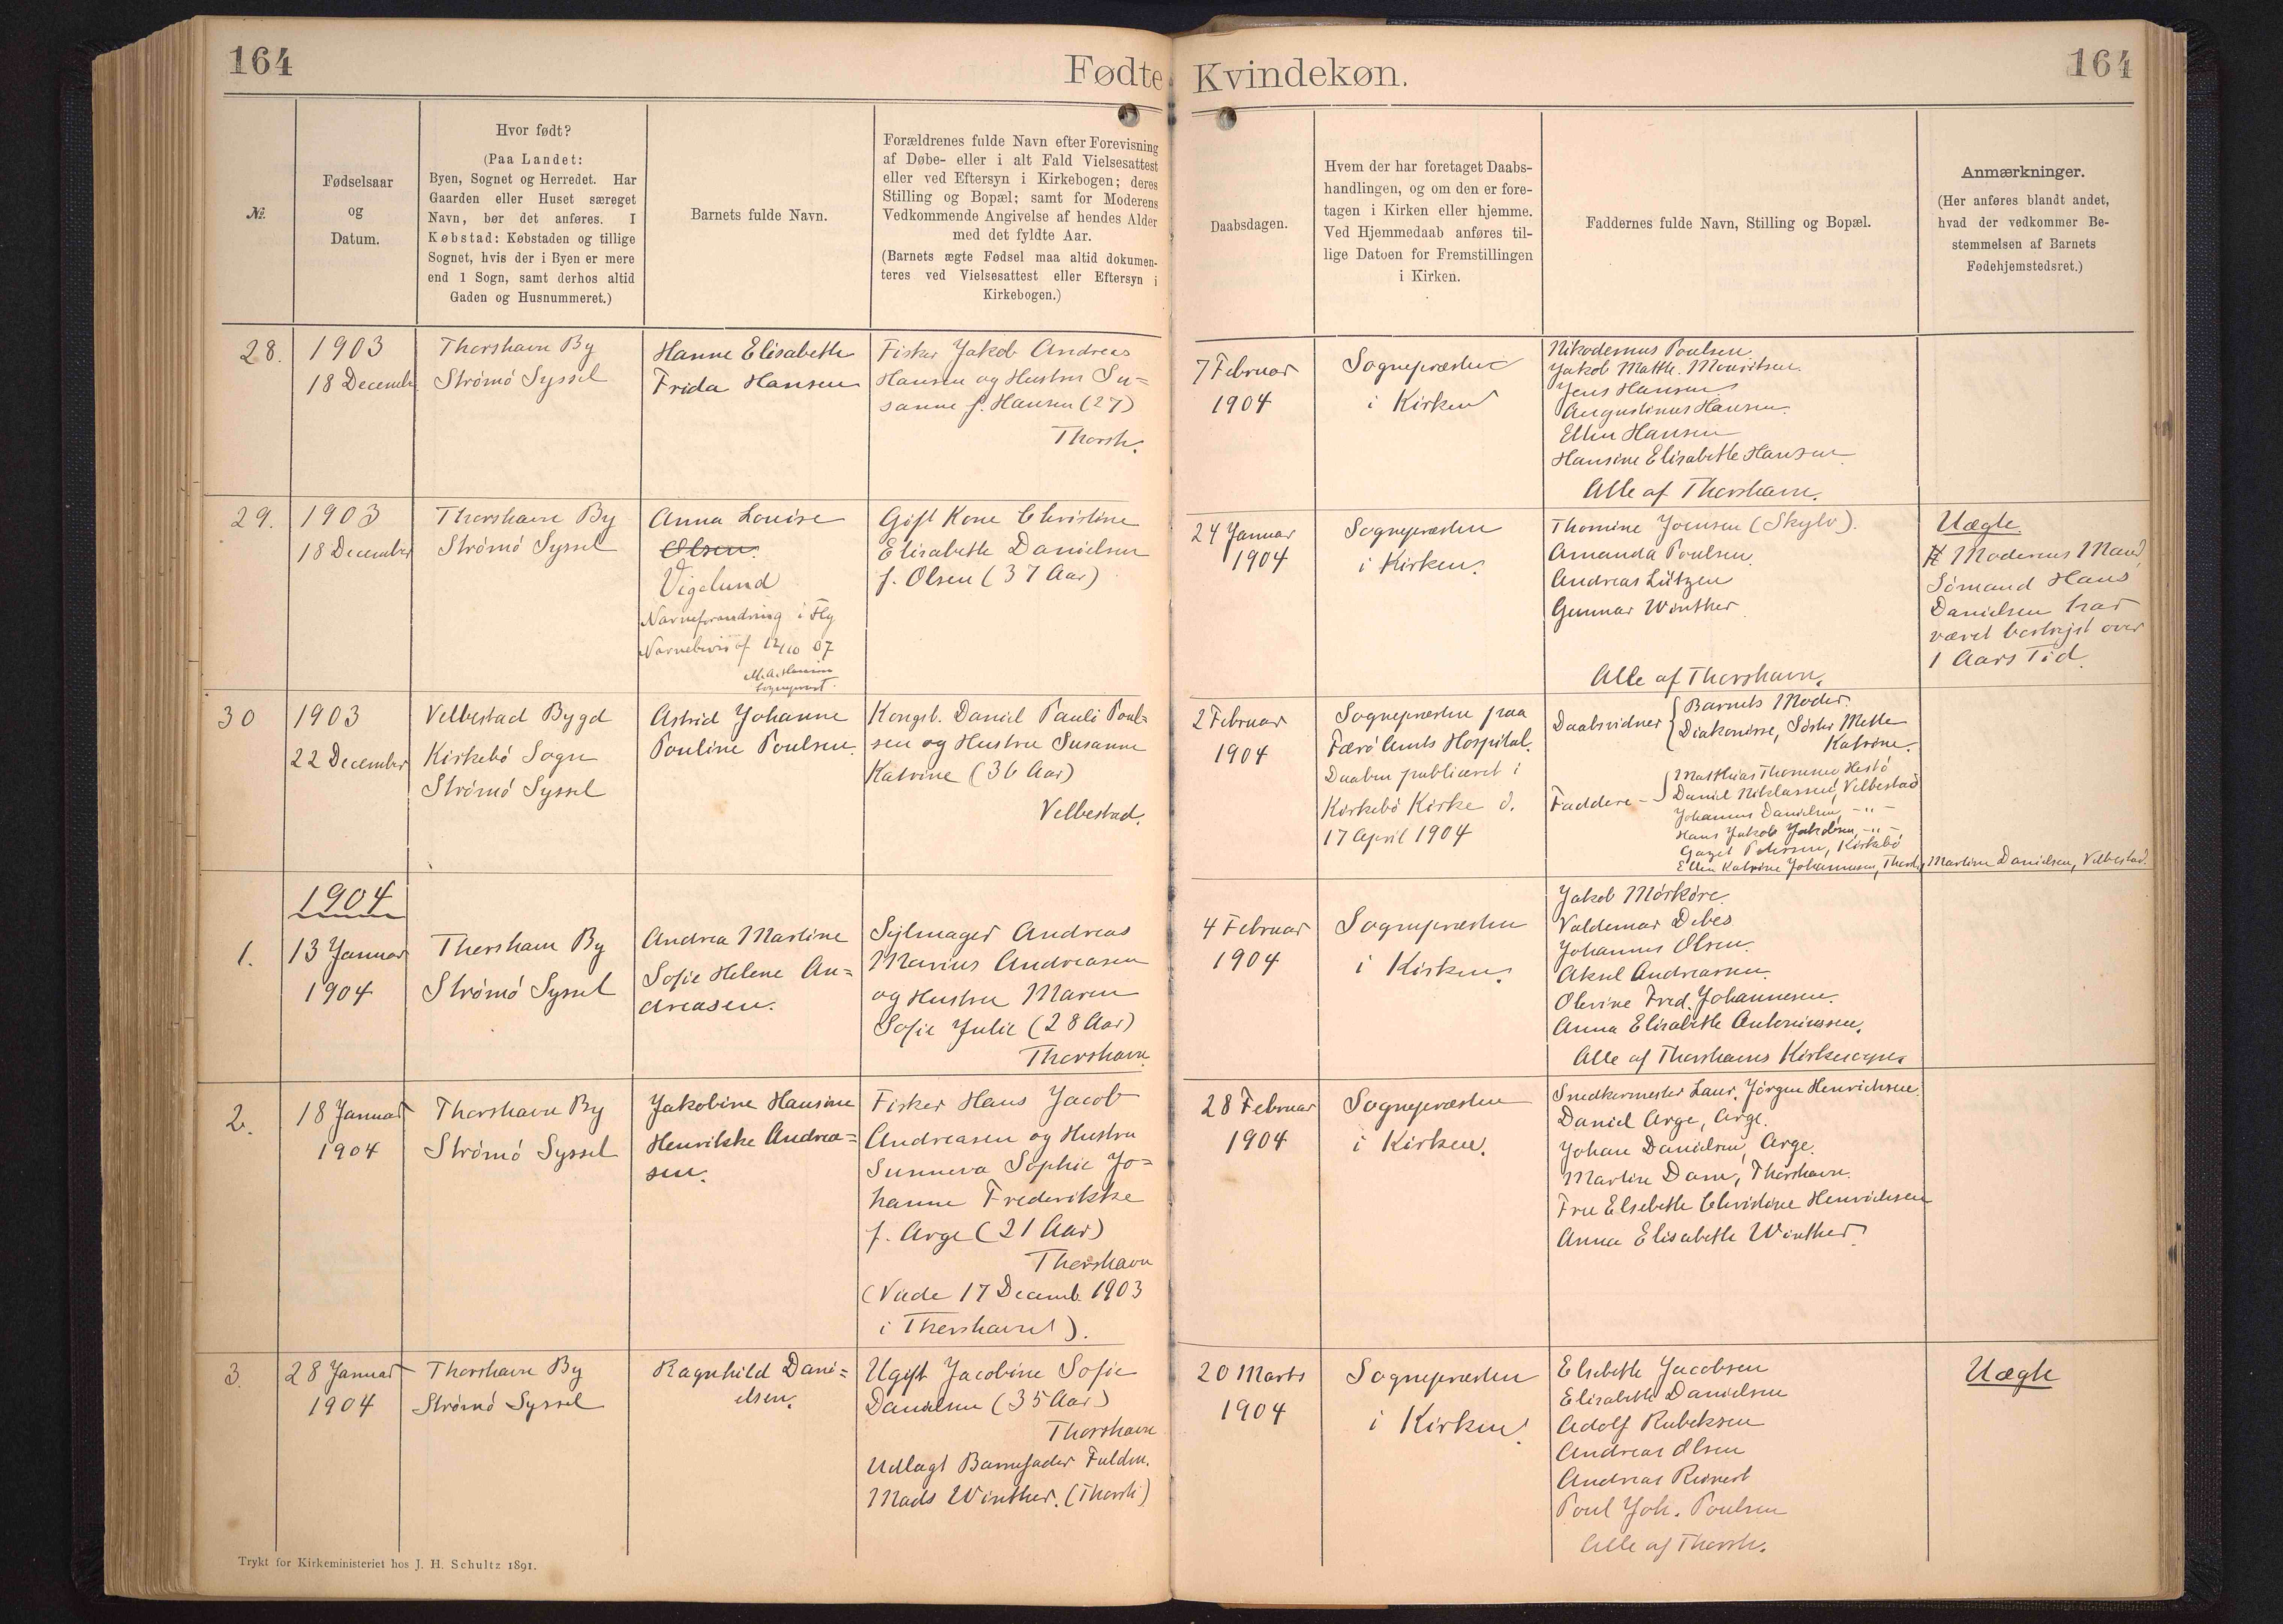 164
Fødte
Kvindekøn.
164
№.
Fødselsaar
og
Datum.
Hvor født?
(Paa Landet:
Byen, Sognet og Herredet. Har
Gaarden eller Huset særeget
Navn, bør det anføres. I
Købstad: Købstaden og tillige
Sognet, hvis der i Byen er mere
end 1 Sogn, samt derhos altid
Gaden og Husnummeret.)
Barnets fulde Navn.
Forældrenes fulde Navn efter Forevisning
af Døbe- eller i alt Fald Vielsesattest
eller ved Eftersyn i Kirkebogen; deres
Stilling og Bopæl; samt for Moderens
Vedkommende Angivelse af hendes Alder
med det fyldte Aar.
(Barnets ægte Fødsel maa altid dokumen-
teres ved Vielsesattest eller Eftersyn i
Kirkebogen.)
Daabsdagen.
Hvem der har foretaget Daabs-
handlingen, og om den er fore-
tagen i Kirken eller hjemme.
Ved Hjemmedaab anføres til-
lige Datoen for Fremstillingen
i Kirken.
Faddernes fulde Navn, Stilling og Bopæl.
Anmærkninger.
(Her anføres blandt andet,
hvad der vedkommer Be-
stemmelsen af Barnets
Fødehjemstedsret.)
28.
1903
18 Decembr
Thorshavn By
Strømø Syssel
Hanne Elisabeth
Frida Hansen
Fisker Jakob Andreas
Hansen og Hustru Su=
sanne f. Hansen (27)
Thorsh.
7 Februar
1904
Sognepræsten
i Kirken
Nikodemus Poulsen
Jakob Matth. Mouritsen.
Jens Hansen
Augustinus Hansen.
Ellen Hansen
Hansine Elisabeth Hansen
Alle af Thorshavn.
29.
1903
18 December
Thorshavn By
Strømø Syssel
Anna Louise
Olsen.
Vigelund
Navneforandring i Flg
Navnebevis af 12/10 07
Sognepræst.
Gift Kone Christine
Elisabeth Danielsen
f. Olsen (37 Aar)
24 Januar
1904
Sognepræsten
i Kirken.
Thomine Joensen (Skylv).
Amanda Poulsen.
Andreas Lützen
Gunnar Winther
Alle af Thorshavn.
Uægte
Moderens Mand
Sømand Hans
Danielsen har
været bortrejst over
1 Aars Tid.
30
1903
22 December
Velbestad Bygd
Kirkebø Sogn
Strømø Syssel
Astrid Johanne
Pouline Poulsen.
Kongsb. Daniel Pauli Poul=
sen og Hustru Susanne
Katrine (36 Aar)
Velbestad.
2 Februar
1904
Sognepræsten paa
Færø Amts Hospital.
Daaben publiceret i
Kirkebø Kirke d.
17 April 1904
Daabsvidner { Barnets Moder.
Diakonisse, Søster Mette
Katrine.
Faddere - { Matthias Thomsen Hestø
Daniel Niklassen, Velbestad
Johannes Danielsen, -"-
Hans Jakob Jakobsen, -"-
Petersen, Kirkebø
Ellen Katrine Johannesen, Thorsh, Martine Danielsen, Velbestad.
1904
1.
13 Januar
1904
Thorshavn By
Strømø Syssel
Andrea Martine
Sofie Helene An=
dreasen.
Sejlmager Andreas
Marius Andreasen
og Hustru Maren
Sofie Julie (28 Aar)
Thorshavn
4 Februar
1904
Sognepræsten
i Kirken.
Jakob Mørkøre.
Valdemar Debes
Johannes Olsen.
Aksel Andreasen
Olevine Fred. Johannesen.
Anna Elisabeth Antoniussen.
Alle af Thorshavns Kirkesogn.
2.
18 Januar
1904
Thorshavn By
Strømø Syssel
Jakobine Hansine
Henrikke Andrea=
sen.
Fisker Hans Jacob
Andreasen og Hustru
Sunneva Sophie Jo=
hanne Frederikke
f. Arge (21 Aar)
Thorshavn
(Viede 17 Decemb. 1903
i Thorshavn).
28 Februar
1904
Sognepræsten
i Kirken.
Snedkermester Laur. Jørgen Henrichsen
Daniel Arge, Arge.
Johan Danielsen, Arge.
Martin Dam, Thorshavn.
Fru Elsebeth Christine Henrichsen
Anna Elisabeth Winther
3.
28 Januar
1904
Thorshavn By
Strømø Syssel
Ragnhild Dani=
elsen.
Ugift Jacobine Sofie
Danielsen (35 Aar)
Thorshavn
Udlagt Barnefader Fuldm.
Mads Winther. (Thorsh)
20 Marts
1904
Sognepræsten
i Kirken.
Elsebeth Jacobsen
Elisabeth Danielsen
Adolf Rubeksen
Andreas Olsen
Andreas Reinert
Poul Joh. Poulsen
Alle af Thorsh.
Uægte
Trykt for Kirkeministeriet hos J. H. Schultz 1891.